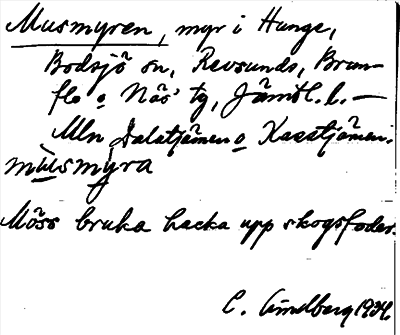 Musmyren, myr i Hunge,
Bodsjö sn, Revsunds, Brun-
flo o Näs' tg, Jämtl. l. —
Mln Dalatjärnen o Kasatjärnen.
mùsmýra
Möss bruka hacka upp skogsfoder.
C. Lindberg 1934.